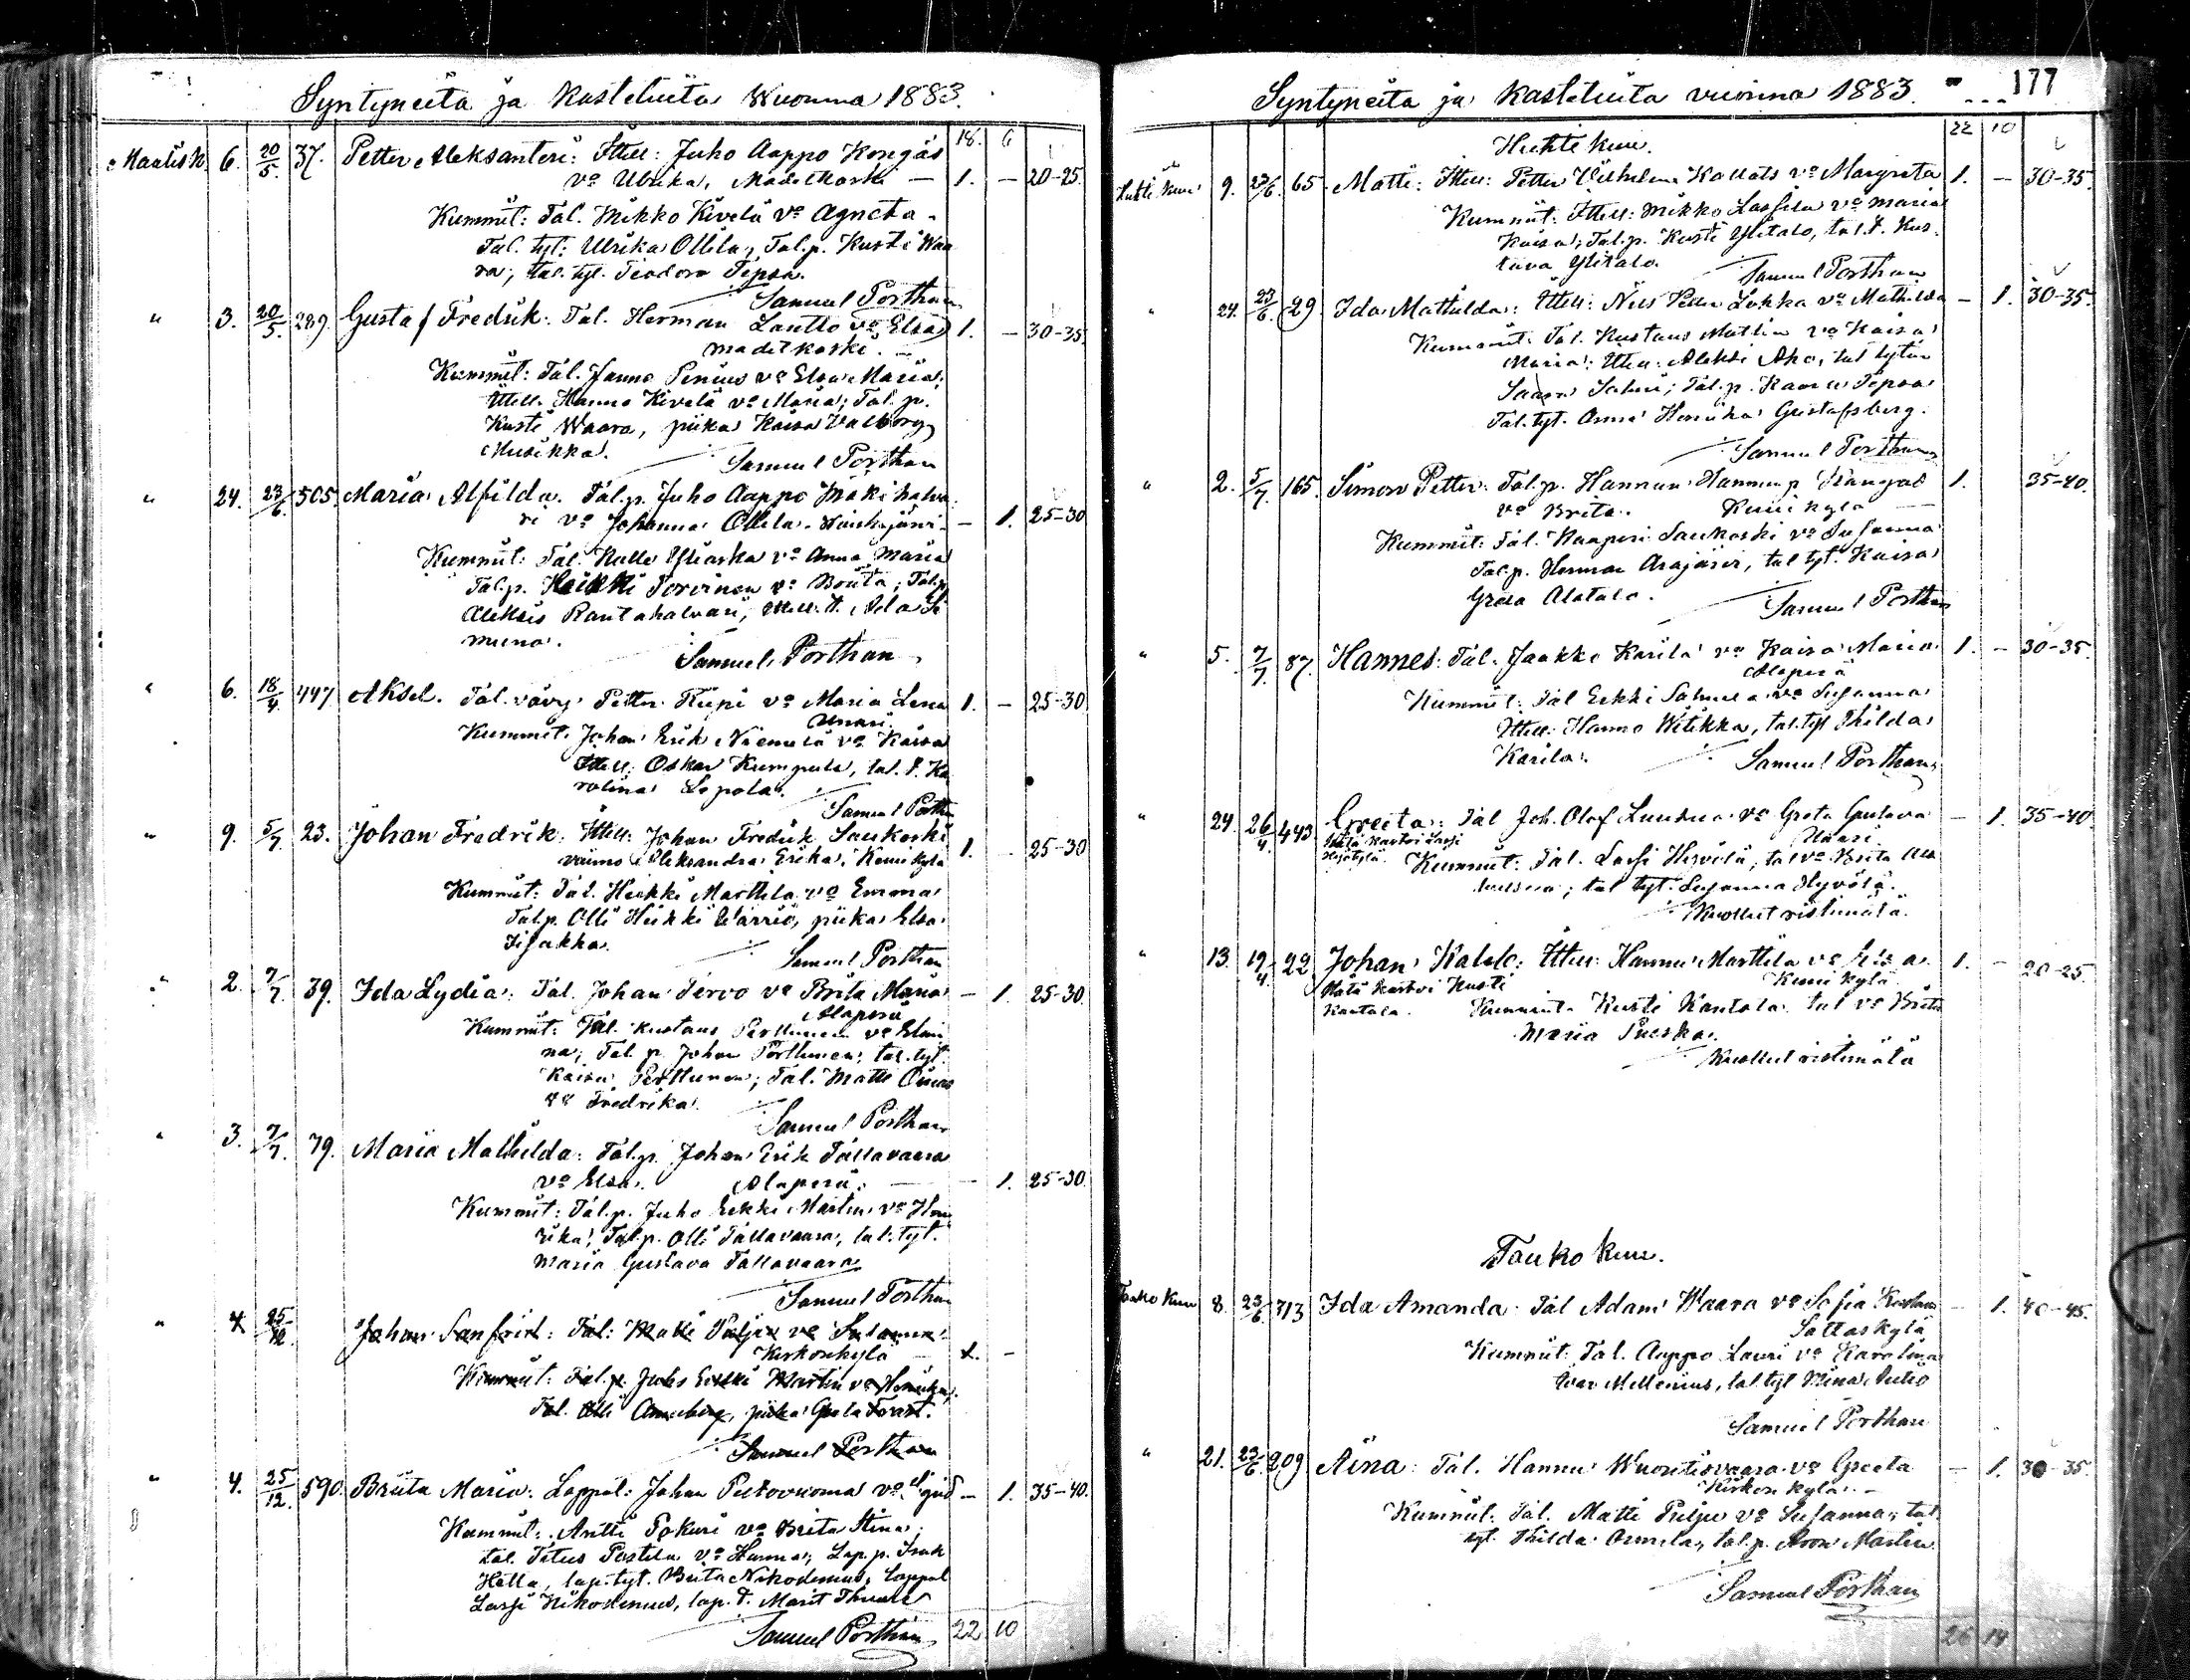 Syntyneitä ja Kastetuita Wuonna 1883.
18. 6
Maalisk. 6. 20/5. 37. Petter Aleksanteri: Ittell: Juho Aappo Kongäs
vo Ulrika, Madetkoski — 1. — 20-25.
Kummit: Tal. Mikko Kivelä vo Agneta
Tal. tyt: Ulrika Ollila, Tal.p. Kusti Waa
ra, tal. tyt. Teodora Tepsa.
Samuel Porthan
" 3. 20/5. 289. Gustaf Fredrik: Tal. Herman Lautto vo Elsa 1. — 30-35.
Madetkoski. —
Kummit: Tal. Janne Penius vo Elsa Maria;
Ittell. Hannu Kivelä vo Maria; Tal. p.
Kusti Waara, piika Kaisa Valborg
Musikka.
Samuel Porthan
" 24. 23/6. 505. Maria Alfilda. Tal.p. Juho Aappo Mäkihalva
ri vo Johanna Ollila. — 1. 25-30
Kummit: Tal. Kalle vo Anna Maria
Tal.p. Heikki Torvinen vo Briita; Tal.p
Aleksis Rantahalvari, Ittell. t. Ida
Samuel Porthan
" 6. 18/4. 447 Aksel. Tal. vävy Petter Riipi vo Maria Lena 1. — 25-30
Unari.
Kummit: Johan Erik Niemelä vo Kaisa
Ittell: Oskar Kumpula, tal. t. Ka
rolina Lepola.
Samuel Porthan
" 9. 5/7. 23. Johan Fredrik: Ittell: Johan Fredrik Saukoski
vaimo Aleksandra Erika, Kemikylä 1. — 25-30
Kummit: Tal. Heikki Marttila vo Emma
Tal.p. Olli Heikki Wärriö, piika Elsa
Samuel Porthan
" 2. 7/7. 39. Ida Lydia: Tal. Johan Tervo vo Brita Maria — 1. 25-30.
Alaperä
Kummit: Tal. Kustaus Perttunen vo Elvii
na; Tal. p. Johan Perttunen; tal. tyt.
Kaisa Perttunen; Tal. Matti
vo Fredrika.
Samuel Porthan
" 3. 7/7. 79. Maria Mathilda: Tal.p. Johan Erik Tallavaara
vo Elsa. Alaperä. — 1. 25-30.
Kummit: Tal.p. Juho Erkki Martin vo Hen
rika; Tal.p. Olli Tallavaara, tal. tyt.
Maria Gustava Tallavaara
Samuel Porthan
" 4 25/12. Johan Sanfrid: Tal: Matti Puljus vo Susanna
Kirkonkylä — 1. —
Kummit: Tal.p. Juho Erkki Martin vo Henrika;
Tal. Olli Anneberg, piika Greta Forast.
Samuel Porthan
" 4. 25/12. 590. Briita Maria: Lappal: Johan Peltovuoma vo — 1. 35-40.
Kummit: Antti Pokuri vo Brita Stina;
tal. Titus Postila vo Hanna; Lap. p. Isak
Hetta, lap. tyt. Briita Nikodemus, Lappal
Lassi Nikodemus, lap. t. Marit
Samuel Porthan 22 10
Syntyneitä ja Kastetuita vuonna 1883. 177
22 10
Huhtikuu.
Huhtikuu 9. 23/6. 65. Matti: Ittell: Petter Vilhelm Kallats vo Margreta 1. — 30-35.
Kummit: Ittell: Mikko Lassila vo Maria
Kaisa; Tal.p. Kusti Ylitalo, tal.t. Kus
tava Ylitalo.
Samuel Porthan
" 24. 23/6. 29 Ida Mathilda: Ittell: Nils Petter Lokka vo Mathilda — 1. 30-35.
Kummit: Tal. Kustaus Mattin vo Kaisa
Maria; Ittell: Aleksi Aho, tal tytär
Saara; Tal.p. Kaarle Tepsa
Tal. tyt. Anna Henrika Gustafsberg.
Samuel Porthan
" 2. 5/7. 165. Simon Petter: Tal.p. Hannu Hannunp. Kangas 1. 35-40.
vo Brita. Kemikylä —
Kummit: Tal. Kaaperi Saukoski vo Susanna
Tal.p. Herman Arajärvi, tal tyt. Kaisa
Greta Alatalo.
Samuel Porthan
" 5. 7/7. 87. Hannes: Tal. Jaakko Karila vo Kaisa Maria 1. — 30-35.
Alaperä
Kummit: Tal Erkki vo Susanna
Ittell: Hannu Witikka, tal.tyt Thilda
Karila.
Samuel Porthan
" 24. 26/4. 443 Greeta: Tal Joh. Olof Luusua vo Greta Gustava — 1. 35-40.
Unari
Hätä kastoi Lassi
Hyötylä. Kummit: Tal. Lassi Hyvölä, tal vo Brita
; tal tyt. Susanna Hyvölä.
Kuollut ristimätä.
" 13. 19/4. 22 Johan Kalle: Ittell: Hannu Marttila vo Liisa 1. — 20-25.
Kemikylä
Hätä kastoi Kusti
Kantola. Kummit: Kusti Kantola, tal vo Brita
Maria
Kuollut ristimätä
Toukokuu.
Toukokuu 8. 23/6. 313 Ida Amanda: Tal Adam Waara vo Sofia — 1. 40-45.
Sattaskylä
Kummit: Tal. Aappo Lauri vo Karolina
Iivar Mellenius, tal.tyt Miina Autio
Samuel Porthan
" 21. 23/6. 209 Aina: Tal. Hannu Wuontisvaara vo Greeta — 1. 30-35.
Kirkonkylä. —
Kummit: Tal. Matti Puljus vo Susanna; tal
tyt. Thilda Annela, tal.p. Aron Martin
Samuel Porthan
26 14